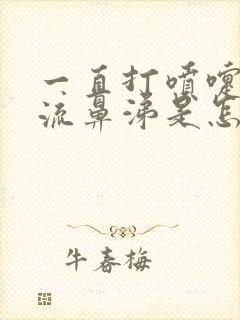 一直打喷嚏
流鼻涕是怎
牛春梅